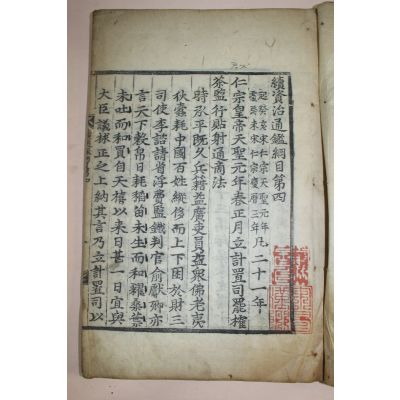 續資治通鑑綱目第四
起癸亥宋仁宗天聖元年凡二十一年
盡癸未宋仁宗慶曆三年
仁宗皇帝天聖元年春正月立計置司罷榷
茶鹽行貼射通商法
時承平既久兵籍益廣吏員益衆佛老夷
狄蠧耗中國百姓縱侈而上下困於財三
司使李諮請省浮費鹽鐵判官俞獻卿亦
言天下穀帛日耗稻苗未生而和糴桑葉
未吐而和買自天禧以来日甚一日宜與
大臣議捄正之上納其言乃立計置司以